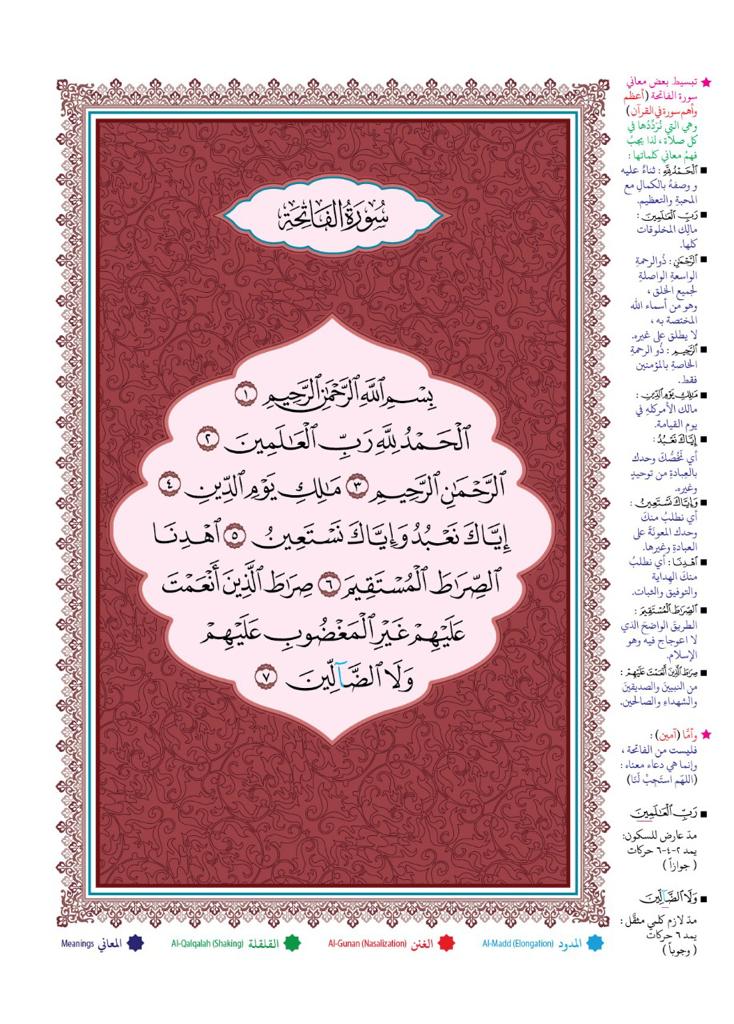 سُورَةُ الفَاتِحَةِ
بِسْمِ ٱللَّهِ ٱلرَّحْمَٰنِ ٱلرَّحِيمِ ١
ٱلْحَمْدُ لِلَّهِ رَبِّ ٱلْعَٰلَمِينَ ٢
ٱلرَّحْمَٰنِ ٱلرَّحِيمِ ٣ مَٰلِكِ يَوْمِ ٱلدِّينِ ٤
إِيَّاكَ نَعْبُدُ وَإِيَّاكَ نَسْتَعِينُ ٥ ٱهْدِنَا
ٱلصِّرَٰطَ ٱلْمُسْتَقِيمَ ٦ صِرَٰطَ ٱلَّذِينَ أَنْعَمْتَ
عَلَيْهِمْ غَيْرِ ٱلْمَغْضُوبِ عَلَيْهِمْ
وَلَا ٱلضَّآلِّينَ ٧
تبسيط بعض معاني
سورة الفاتحة (أعظم
وأهم سورة في القرآن)
وهي التي نُرَدِّدُها في
كل صلاة ، لذا يجبُ
فهمُ معاني كلماتها :
ٱلْحَمْدُ لِلَّهِ : ثناءً عليه
و وصفهُ بالكمالِ مع
المحبةِ والتعظيم.
رَبِّ ٱلْعَٰلَمِينَ :
مالِك المخلوقات
كلها.
ٱلرَّحْمَٰنِ : ذُوالرحمةِ
الواسعةِ الواصلةِ
لجميع الخلقِ ،
وهو من أسماء الله
المختصة به ،
لا يطلق على غيرِه.
ٱلرَّحِيمِ : ذُو الرحمةِ
الخاصةِ بالمؤمنين
فقط.
مَٰلِكِ يَوْمِ ٱلدِّينِ :
مالك الأمر كله في
يوم القيامة.
إِيَّاكَ نَعْبُدُ :
أي نَخُصُّكَ وحدك
بالعبادةِ من توحيدٍ
وغيره.
وَإِيَّاكَ نَسْتَعِينُ :
أي نطلبُ منكَ
وحدك المعونةَ على
العبادةِ وغيرها.
ٱهْدِنَا : أي نطلبُ
منكَ الهداية
والتوفيق والثبات.
ٱلصِّرَٰطَ ٱلْمُسْتَقِيمَ :
الطريق الواضحَ الذي
لا اعوجاج فيه وهو
الإسلام.
صِرَٰطَ ٱلَّذِينَ أَنْعَمْتَ عَلَيْهِمْ :
من النبيين والصديقين
والشهداءِ والصالحين.
وأمَّا (آمين) :
فليست من الفاتحة ،
وإنما هي دعاء معناه :
(اللهم استَجِبْ لَنا)
رَبِّ ٱلْعَٰلَمِينَ
مدّ عارض للسكون:
يمد ٢-٤-٦ حركات
( جوازاً )
وَلَا ٱلضَّآلِّينَ
مدّ لازم كلمي مثقّل :
يمد ٦ حركات
( وجوباً )
المدود Al-Madd (Elongation) الغنن Al-Gunan (Nasalization) القلقلة Al-Qalqalah (Shaking) المعاني Meanings